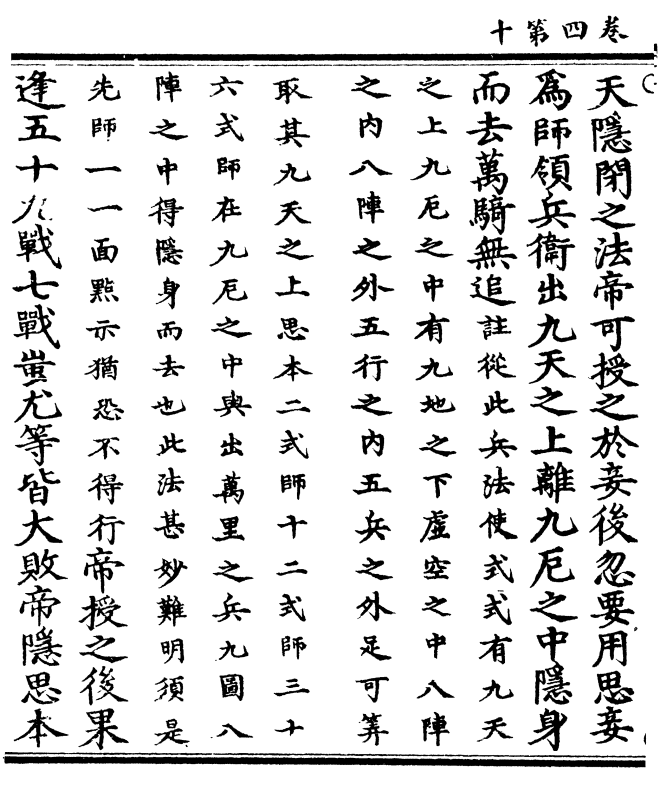 卷四第十
天隱閉之法帝可授之於妾後忽要用思妾
爲師領兵衛出九天之上離九厄之中隱身
而去萬騎無追註從此兵法使式式有九天
之上九厄之中有九地之下虛空之中八陣
之內八陣之外五行之內五兵之外足可筭
取其九天之上思本二式師十二式師三十
六式師在九厄之中與出萬里之兵九圖八
陣之中得隱身而去也此法甚妙難明須是
先師一一面點示猶恐不得行帝授之後果
逢五十九戰七戰蚩尤等皆大敗帝隱思本